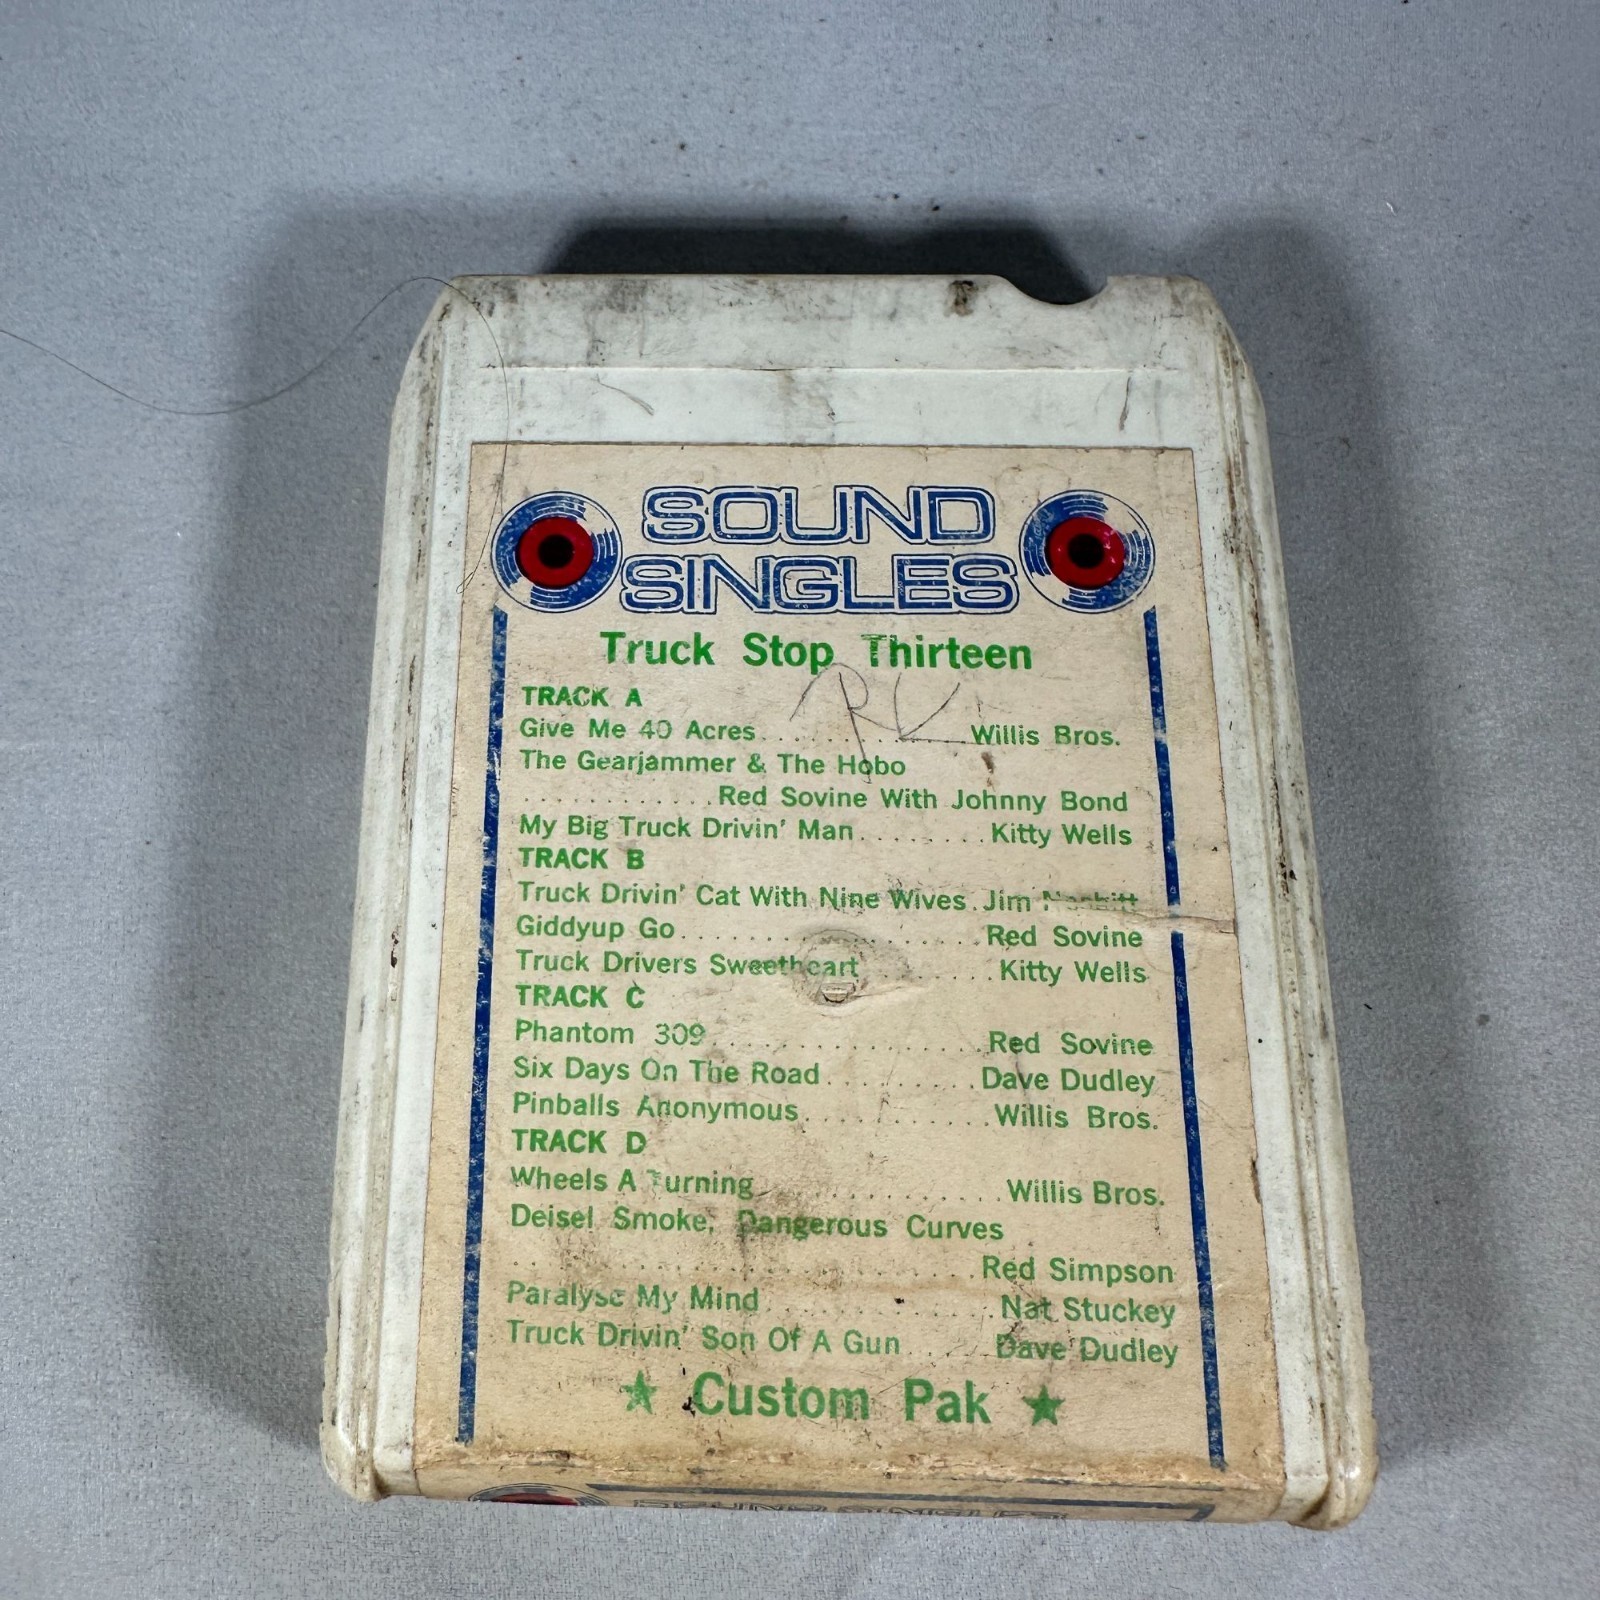 SOUND
SINGLES
Truck Stop Thirteen
RK
TRACK A
Give Me 40 Acres..........Willis Bros.
The Gearjammer & The Hobo
............Red Sovine With Johnny Bond
My Big Truck Drivin' Man........Kitty Wells
TRACK B
Truck Drivin' Cat With Nine Wives.Jim Nesbitt
Giddyup Go..................Red Sovine
Truck Drivers Sweetheart........Kitty Wells
TRACK C
Phantom 309.................Red Sovine
Six Days On The Road..........Dave Dudley
Pinballs Anonymous............Willis Bros.
TRACK D
Wheels A Turning...............Willis Bros.
Deisel Smoke, Dangerous Curves
............................Red Simpson
Paralyse My Mind..............Nat Stuckey
Truck Drivin' Son Of A Gun......Dave Dudley
★ Custom Pak ★
SOUND SINGLES